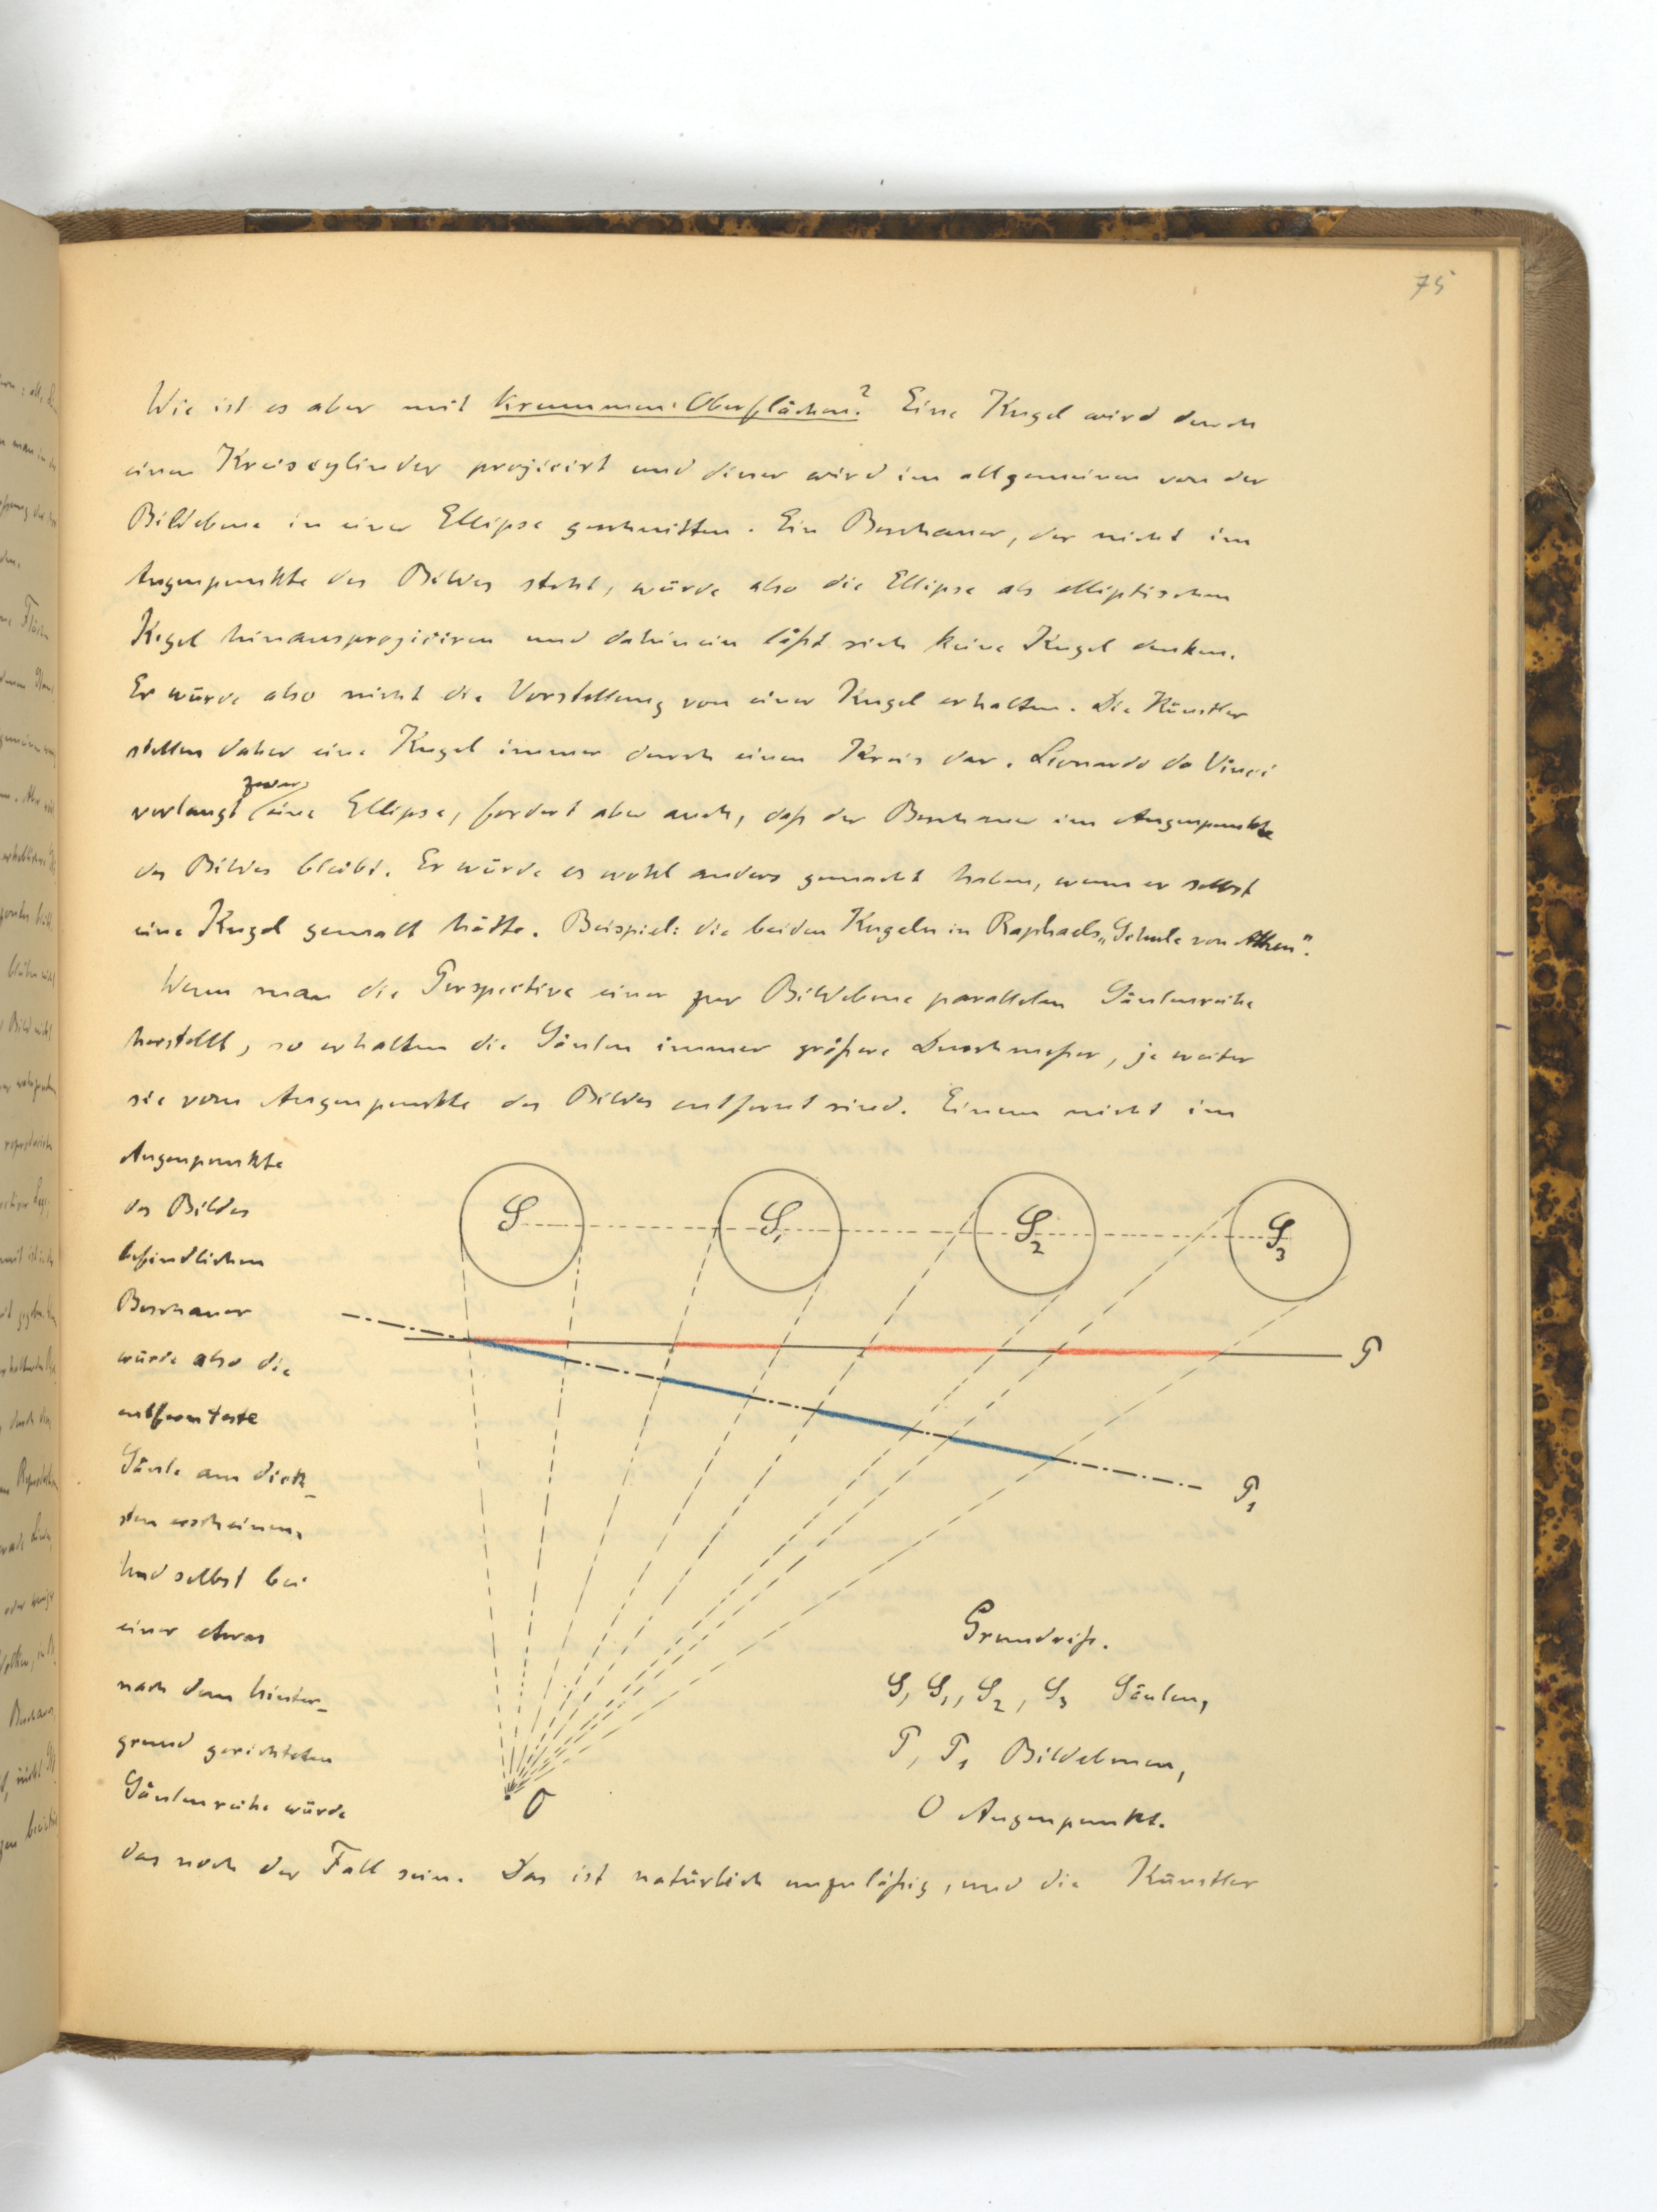 75
Wie ist es aber mit krummen Oberflächen? Eine Kugel wird durch
einen Kreiscylinder projicirt und dieser wird im allgemeinen von der
Bildebene in einer Ellipse geschnitten. Ein Beschauer, der nicht im
Augenpunkte des Bildes steht, würde also die Ellipse als elliptischen
Kegel hinausprojiciren und dahinein läßt sich keine Kugel denken.
Er würde also nicht die Vorstellung von einer Kugel erhalten. Die Künstler
stellen daher eine Kugel immer durch einen Kreis dar. Lionardo da Vinci
zwar
verlangt eine Ellipse, fordert aber auch, daß der Beschauer im Augenpunkte
des Bildes bleibt. Er würde es wohl anders gemacht haben, wenn er selbst
eine Kugel gemalt hätte. Beispiel: die beiden Kugeln in Raphaels „Schule von Athen".
Wenn man die Perspective einer zur Bildebene parallelen Säulenreihe
herstellt, so erhalten die Säulen immer größere Durchmeßer, je weiter
sie vom Augenpunkte des Bildes entfernt sind. Einem nicht im
Augenpunkte
des Bildes
befindlichen
Beschauer
würde also die
entfernteste
Säule am dick-
sten erscheinen.
Und selbst bei
einer etwas
nach dem Hinter-
grund gerichteten
Säulenreihe würde
das noch der Fall sein. Das ist natürlich unzuläßig, und die Künstler
S S1 S2 S3
P
P1
O
Grundriß.
S, S1, S2, S3 Säulen,
P, P1 Bildebenen,
O Augenpunkt.